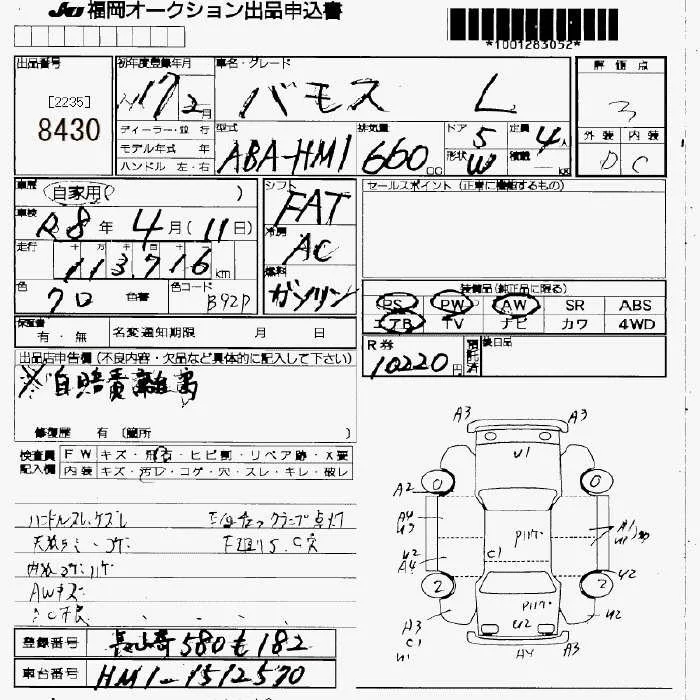 JU 福岡オークション出品申込書
*1001283052*
出品番号 初年度登録年月 車名・グレード 評価点
[2235]
8430
H17年2月 バモス L 3
ディーラー・並行 型式 排気量 ドア 定員 外装 内装
モデル年式 年 ABA-HM1 660 CC 5 4人 D C
ハンドル 左・右 形状 W 積載 KG
車歴 自家用( ) シフト セールスポイント(正常に機能するもの)
FAT
車検 R8年4月(11日) 冷房
AC
走行 113,716 km 燃料
ガソリン
色 クロ 色番 色コード B92P
装備品(純正品に限る)
PS PW AW SR ABS
エアB TV ナビ カワ 4WD
保証書 有・無 名変通知期限 月 日
R券 10220円 預託済 後日品
出品店申告欄(不良内容・欠品など具体的に記入して下さい)
※自賠責離島
修復歴 有 〔箇所 〕
検査員 FW キズ・飛石・ヒビ割・リペア跡・X要
記入欄 内装 キズ・汚レ・コゲ・穴・スレ・キレ・破レ
ハンドルスレ、ケズレ
AWキズ
A3 A3
U1
0 0
A2
A4
U3
U2
A4
C1
A1
U1
U2
2 2
U2
A3
C1
U1
U2
A4 A3
登録番号 長崎 580 も 182
車台番号 HM1-1512570